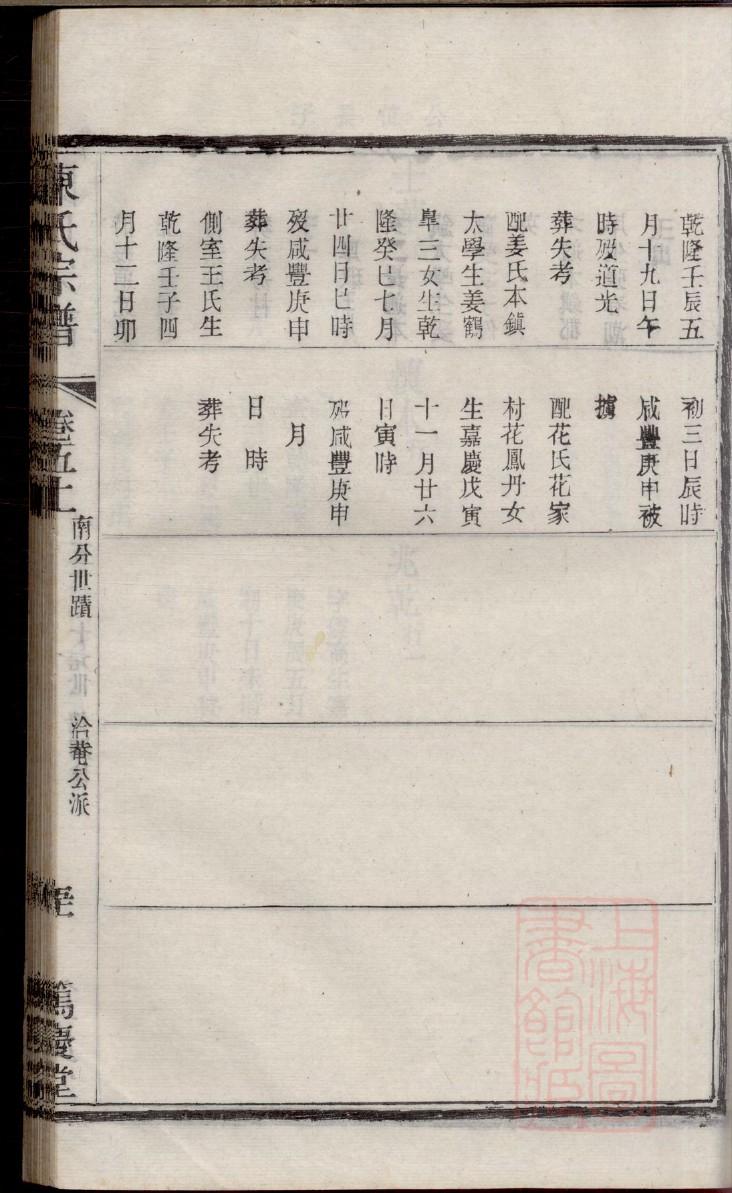 乾隆壬辰五
月十九日午
時歿道光
葬失考
配姜氏本鎮
太學生姜鶴
臯三女生乾
隆癸巳七月
廿四日巳時
歿咸豐庚申
葬失考
側室王氏生
乾隆壬子四
月十二日卯
初三日辰時
咸豐庚申被
擄
配花氏花家
村花鳳丹女
生嘉慶戊寅
十一月廿六
日寅時
歿咸豐庚申
月
日 時
葬失考
陳氏宗譜
卷五上
南分世蹟
洽菴公派
篤慶堂
上海圖書館